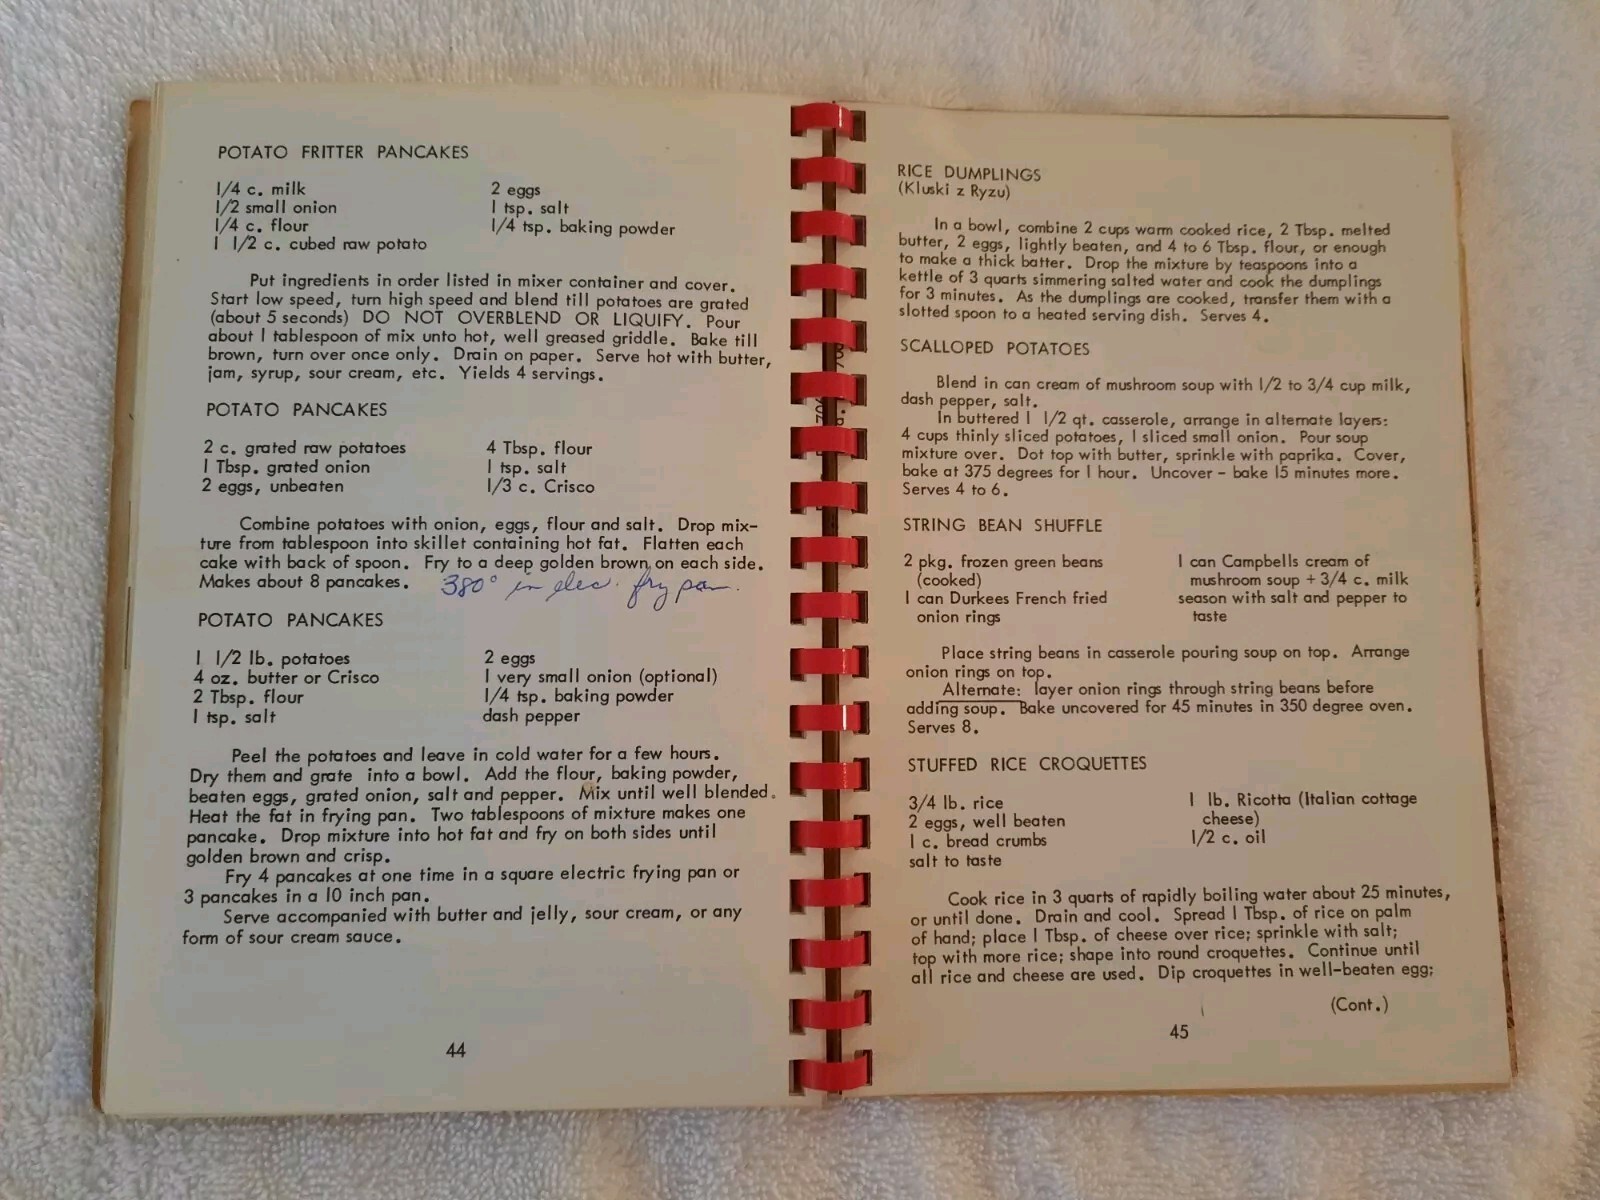 POTATO FRITTER PANCAKES
1/4 c. milk 2 eggs
1/2 small onion 1 tsp. salt
1/4 c. flour 1/4 tsp. baking powder
1 1/2 c. cubed raw potato
Put ingredients in order listed in mixer container and cover.
Start low speed, turn high speed and blend till potatoes are grated
(about 5 seconds) DO NOT OVERBLEND OR LIQUIFY. Pour
about 1 tablespoon of mix unto hot, well greased griddle. Bake till
brown, turn over once only. Drain on paper. Serve hot with butter,
jam, syrup, sour cream, etc. Yields 4 servings.
POTATO PANCAKES
2 c. grated raw potatoes 4 Tbsp. flour
1 Tbsp. grated onion 1 tsp. salt
2 eggs, unbeaten 1/3 c. Crisco
Combine potatoes with onion, eggs, flour and salt. Drop mix-
ture from tablespoon into skillet containing hot fat. Flatten each
cake with back of spoon. Fry to a deep golden brown on each side.
Makes about 8 pancakes. 380° in elec. fry pan.
POTATO PANCAKES
1 1/2 lb. potatoes 2 eggs
4 oz. butter or Crisco 1 very small onion (optional)
2 Tbsp. flour 1/4 tsp. baking powder
1 tsp. salt dash pepper
Peel the potatoes and leave in cold water for a few hours.
Dry them and grate into a bowl. Add the flour, baking powder,
beaten eggs, grated onion, salt and pepper. Mix until well blended.
Heat the fat in frying pan. Two tablespoons of mixture makes one
pancake. Drop mixture into hot fat and fry on both sides until
golden brown and crisp.
Fry 4 pancakes at one time in a square electric frying pan or
3 pancakes in a 10 inch pan.
Serve accompanied with butter and jelly, sour cream, or any
form of sour cream sauce.
44
RICE DUMPLINGS
(Kluski z Ryzu)
In a bowl, combine 2 cups warm cooked rice, 2 Tbsp. melted
butter, 2 eggs, lightly beaten, and 4 to 6 Tbsp. flour, or enough
to make a thick batter. Drop the mixture by teaspoons into a
kettle of 3 quarts simmering salted water and cook the dumplings
for 3 minutes. As the dumplings are cooked, transfer them with a
slotted spoon to a heated serving dish. Serves 4.
SCALLOPED POTATOES
Blend in can cream of mushroom soup with 1/2 to 3/4 cup milk,
dash pepper, salt.
In buttered 1 1/2 qt. casserole, arrange in alternate layers:
4 cups thinly sliced potatoes, 1 sliced small onion. Pour soup
mixture over. Dot top with butter, sprinkle with paprika. Cover,
bake at 375 degrees for 1 hour. Uncover - bake 15 minutes more.
Serves 4 to 6.
STRING BEAN SHUFFLE
2 pkg. frozen green beans 1 can Campbells cream of
(cooked) mushroom soup + 3/4 c. milk
1 can Durkees French fried season with salt and pepper to
onion rings taste
Place string beans in casserole pouring soup on top. Arrange
onion rings on top.
Alternate: layer onion rings through string beans before
adding soup. Bake uncovered for 45 minutes in 350 degree oven.
Serves 8.
STUFFED RICE CROQUETTES
3/4 lb. rice 1 lb. Ricotta (Italian cottage
2 eggs, well beaten cheese)
1 c. bread crumbs 1/2 c. oil
salt to taste
Cook rice in 3 quarts of rapidly boiling water about 25 minutes,
or until done. Drain and cool. Spread 1 Tbsp. of rice on palm
of hand; place 1 Tbsp. of cheese over rice; sprinkle with salt;
top with more rice; shape into round croquettes. Continue until
all rice and cheese are used. Dip croquettes in well-beaten egg;
(Cont.)
45